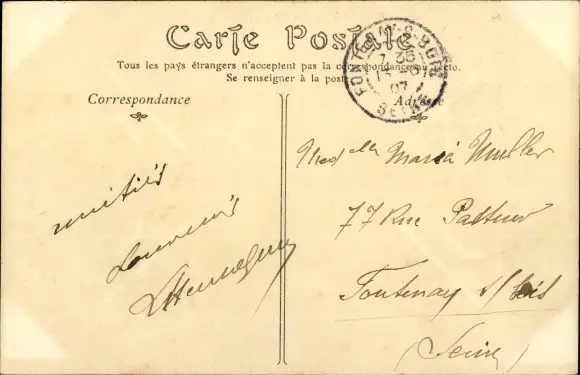 Carte Postale
Tous les pays étrangers n'acceptent pas la correspondance au recto.
Se renseigner à la poste
Correspondance
Adresse
FONTENAY-S-BOIS
7 35
07
SEINE
Med elle Maria Muller
77 Rue
Fontenay s/ Bois
(Seine)
amitiés
Souvenirs